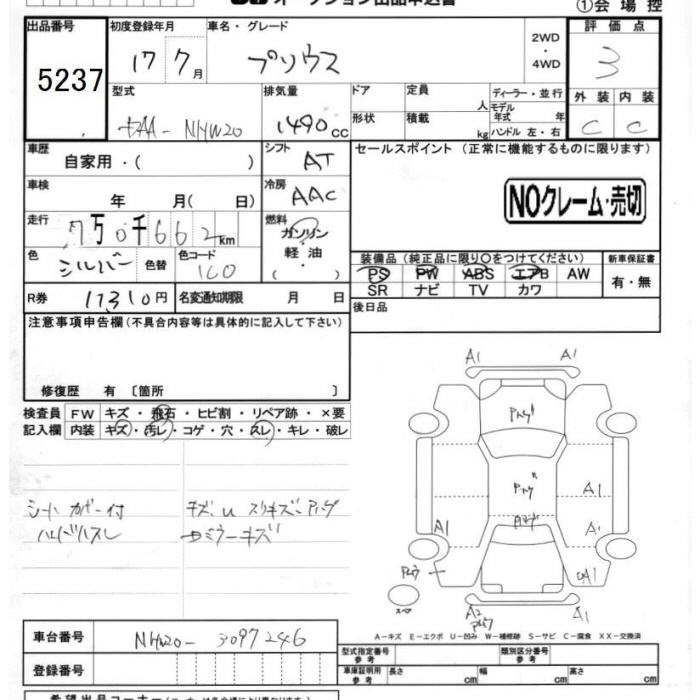 オークション出品申込書
①会場控
出品番号 初度登録年月 車名・グレード 2WD・4WD 評価点
5237 17 7月 プリウス 3
型式 排気量 ドア 定員 人 ディーラー・並行 外装 内装
DAA-NHW20 1490cc 形状 積載 kg モデル年式 年 ハンドル 左・右 C C
車歴 自家用・( ) シフト AT セールスポイント (正常に機能するものに限ります)
車検 年 月( 日) 冷房 AAC NOクレーム・売切
走行 7万0千662km 燃料 ガソリン・軽油・( )
装備品 (純正品に限り○をつけてください) 新車保証書
色 シルバー 色替 色コード 1C0 PS PW ABS エアB AW 有・無
SR ナビ TV カワ
R券 11310円 名変通知期限 月 日 後日品
注意事項申告欄 (不具合内容等は具体的に記入して下さい)
修復歴 有 〔箇所 〕
検査員 FW キズ・飛石・ヒビ割・リペア跡・×要
記入欄 内装 キズ・汚レ・コゲ・穴・スレ・キレ・破レ
シートカバー付 キズ U スリキズ
ハンドルスレ ミラーキズ
A1 A1
A1
A1 A1
A1
A2 A1
スペア
A-キズ E-エクボ U-凹み W-補修跡 S-サビ C-腐食 XX-交換済
車台番号 NHW20-3097246 型式指定番号 参考 類別区分番号 参考
登録番号 車庫証明用 参考 長さ cm 幅 cm 高さ cm
希望出品コーナー